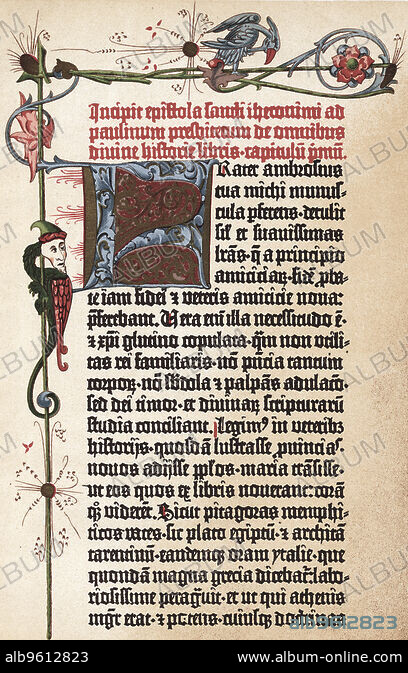 Incipit epistola sancti iheronimi ad
paulinum presbiterum de omnibus
divine historie libris · capitulū p̄mū.
Frater ambrosius
tua michi munus-
cula p̄ferens · detulit
sił et suavissimas
lr̄as · q̄ a principio
amiciciaꝝ · fidē ꝓba-
te iam fidei ⁊ veteris amicicie nova:
p̄ferebant. Vera enī illa necessitudo ē ·
⁊ xp̄i glutino copulata · qm̄ non utili-
tas rei familiaris · nō p̄ncia tantum
corpoꝝ · nō s̄bdola ⁊ palpās adulacō ·
sed dei timor · et divinaꝝ scripturarum
studia conciliant. Legimꝰ in veteribꝫ
historijs · quosdā lustrasse ꝓvincias ·
novos adijsse pp̄los · maria trāsisse ·
ut eos quos ex libris noverant: corā
qꝫ viderēt. Sicut pitagoras memphi-
ticos vates · sic plato egiptū · ⁊ architā
tarentinum · eandemqꝫ oram ytalie · que
quondā magna grecia dicebať: labo-
riosissime peragravit · et ut qui athenis
mgr̄ erat · ⁊ potens · cuiusqꝫ doctrinas
ALBUM
alb9612823
alb9612823
www.album-online.com